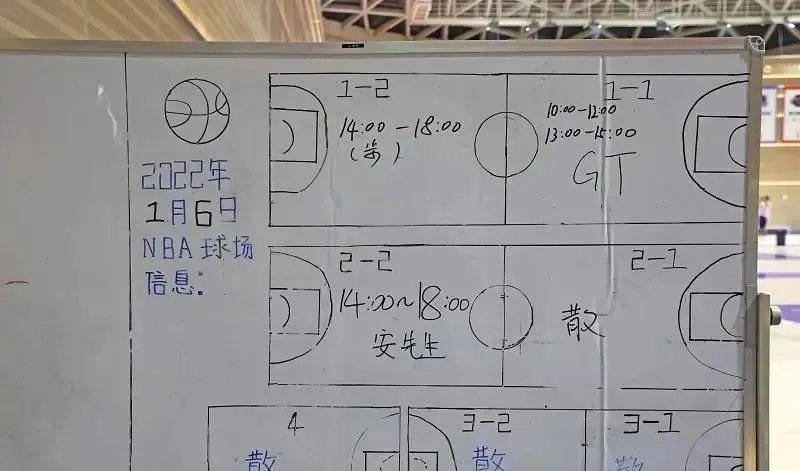 2022年
1月6日
NBA 球场
信息：
1-2
14:00-18:00
1-1
10:00-12:00
13:00-15:00
GT
2-2
14:00~18:00
安先生
2-1
散
4
散
3-2
散
3-1
散